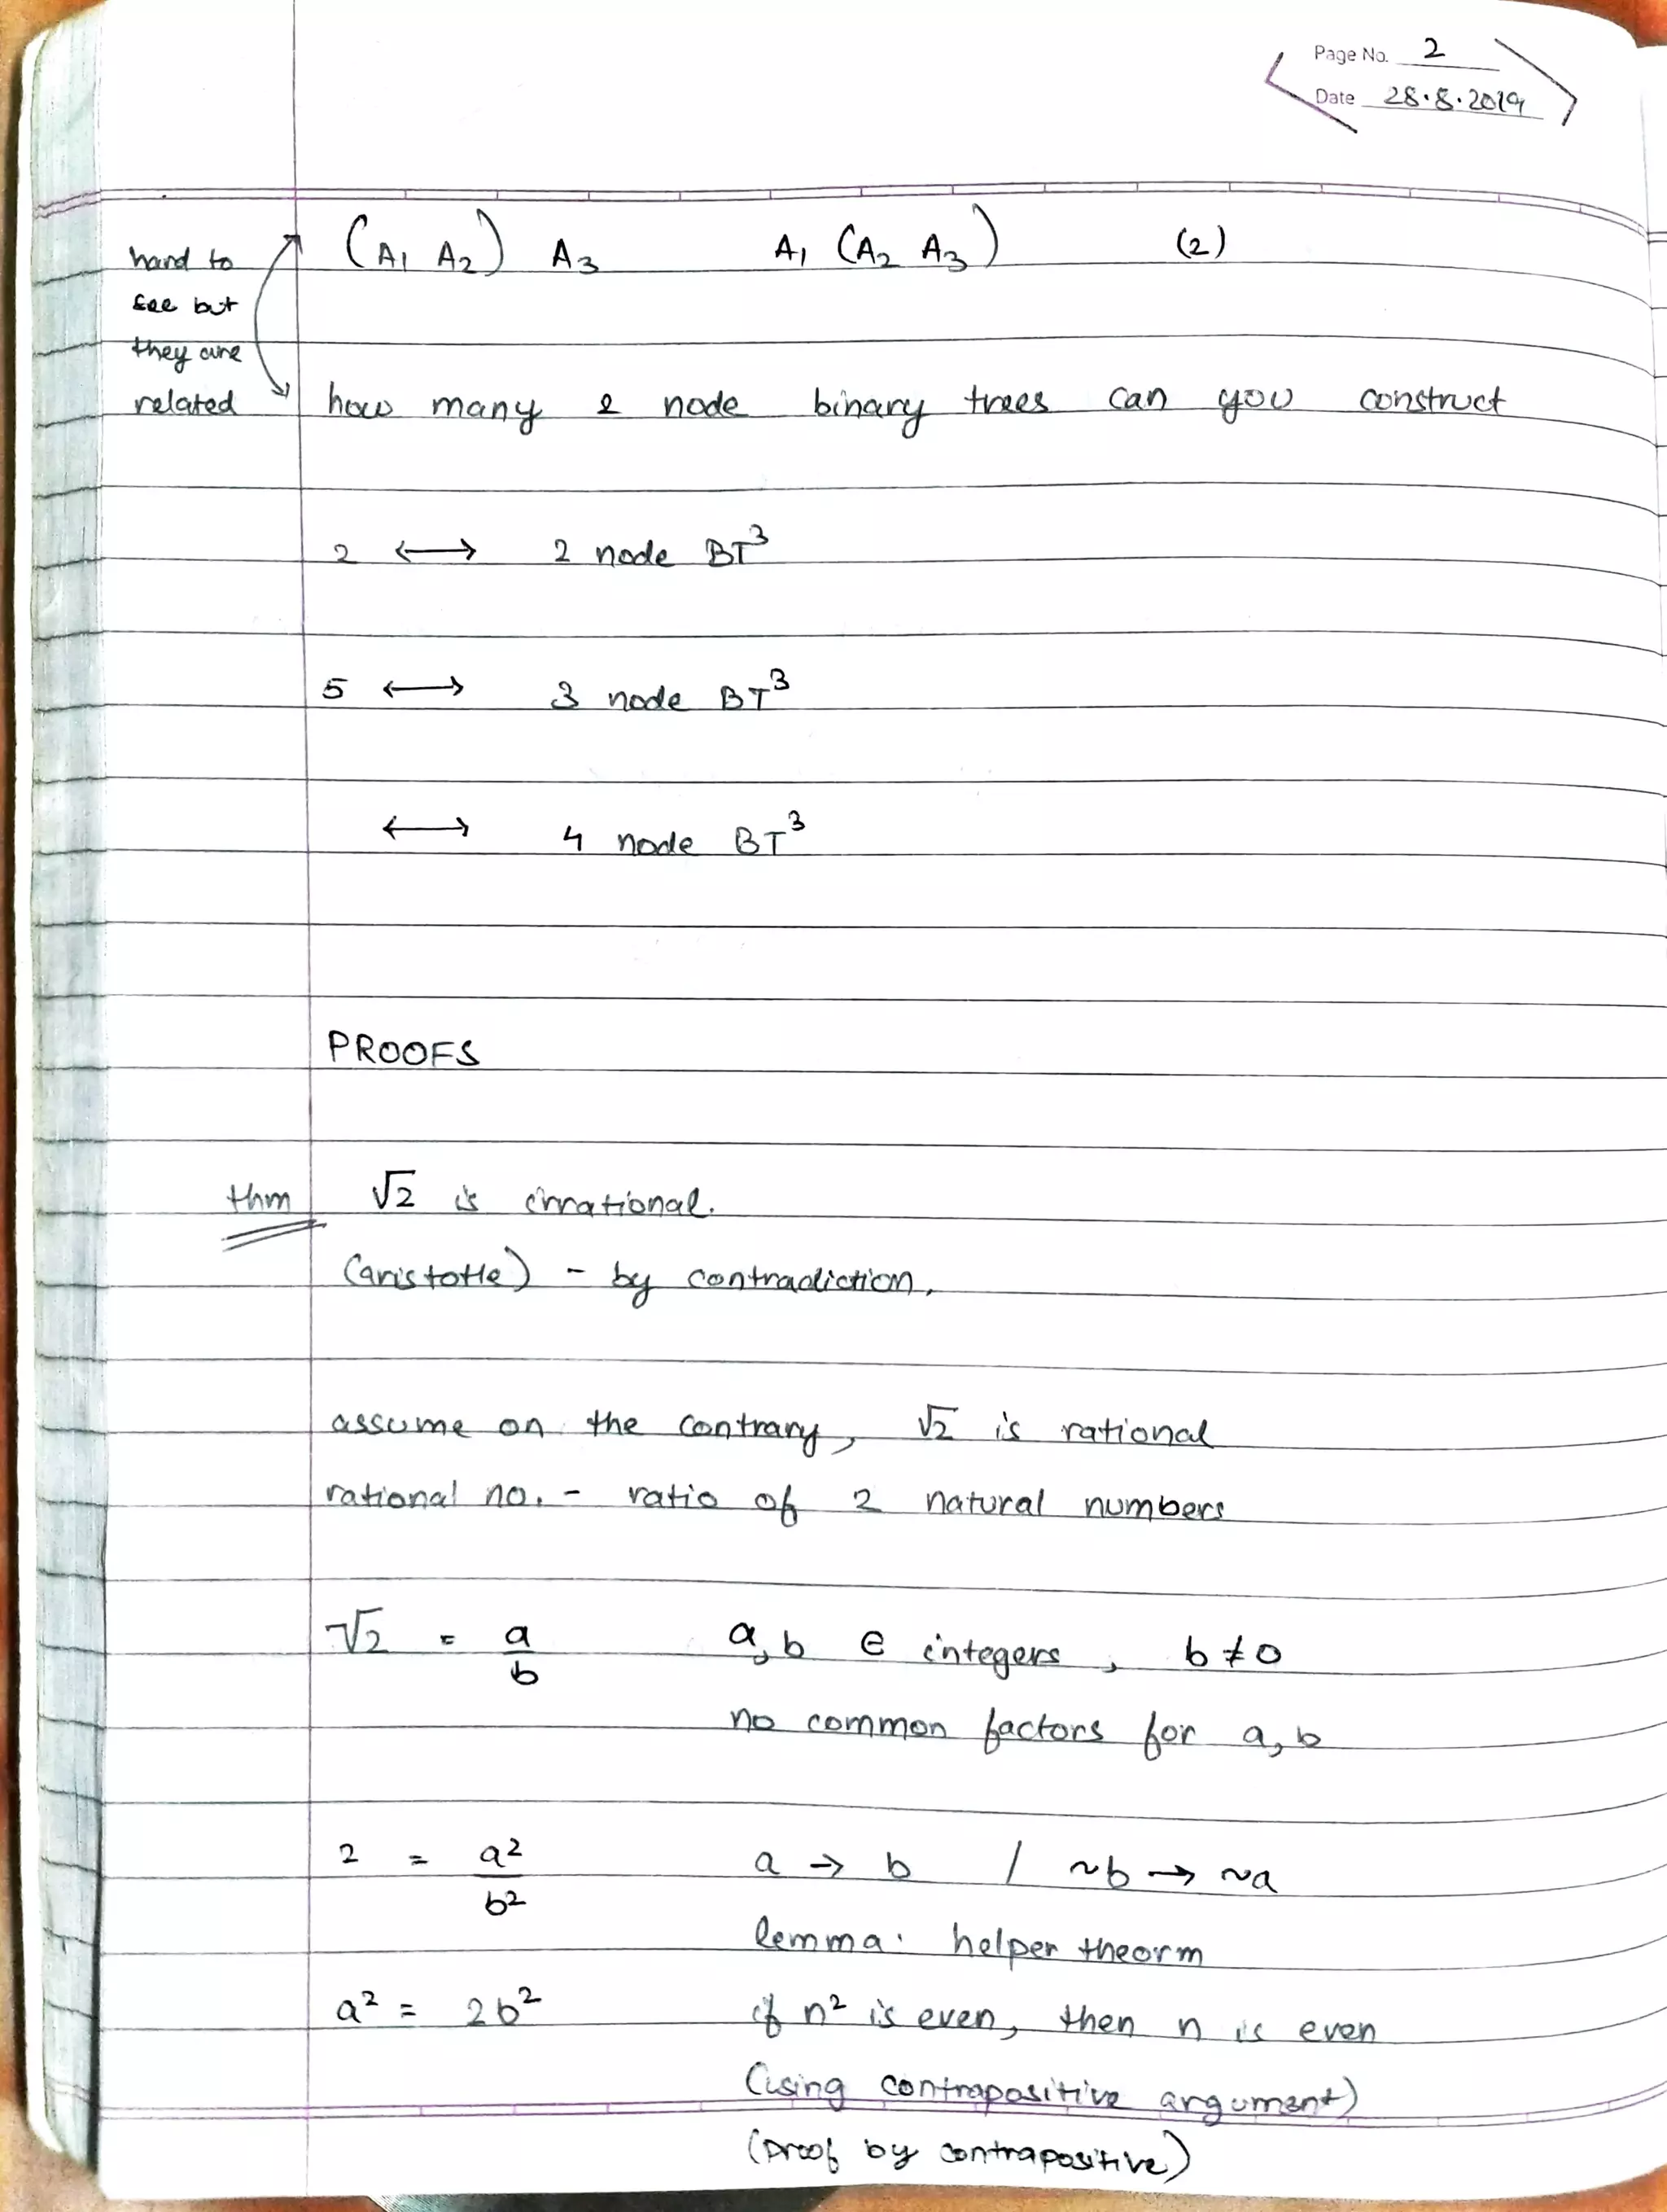 Page No. 2
Date 28.8.2019
(A1 A2) A3 A1 (A2 A3) (2)
hard to
see but
they are
related
how many 2 node binary trees can you construct
2 ⟷ 2 node BT³
5 ⟷ 3 node BT³
⟷ 4 node BT³
PROOFS
thm √2 is irrational.
(aristotle) - by contradiction.
assume on the contrary, √2 is rational
rational no. - ratio of 2 natural numbers
√2 = a/b a,b ∈ integers, b ≠ 0
no common factors for a, b
2 = a²/b² a → b / ~b → ~a
lemma: helper theorm
a² = 2b² if n² is even, then n is even
(using contrapositive argument)
(proof by contrapositive)